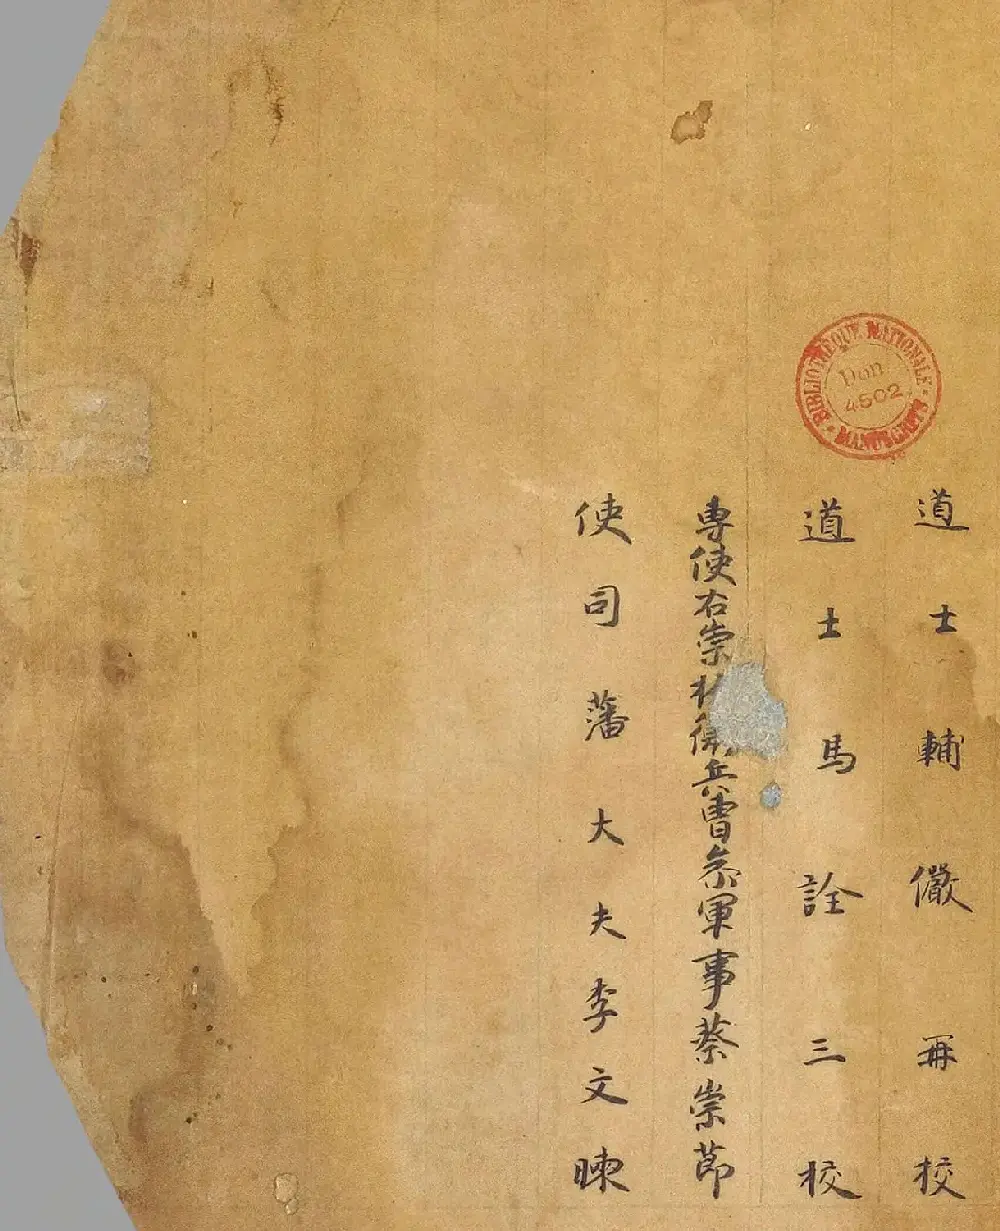 道士輔儼再校
道士馬詮三校
專使右崇衛兵曹參軍事蔡崇節
使司藩大夫李文暕
BIBLIOTHÈQUE NATIONALE
Don
4502
MANUSCRITS